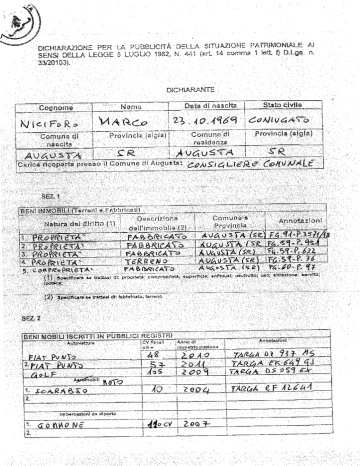 DICHIARAZIONE PER LA PUBBLICITÀ DELLA SITUAZIONE PATRIMONIALE AI
SENSI DELLA LEGGE 5 LUGLIO 1982, N. 441 (art. 14 comma 1 lett. f) D.Lgs. n.
33/20103).
DICHIARANTE
Cognome Nome Data di nascita Stato civile
NICIFORO MARCO 23.10.1969 CONIUGATO
Comune di nascita Provincia (sigla) Comune di residenza Provincia (sigla)
AUGUSTA SR AUGUSTA SR
Carica ricoperta presso il Comune di Augusta: CONSIGLIERE COMUNALE
SEZ. 1
BENI IMMOBILI (Terreni e Fabbricati)
Natura del diritto (1) Descrizione dell'immobile (2) Comune e Provincia Annotazioni
1. PROPRIETA' FABBRICATO AUGUSTA (SR)
2. PROPRIETA' FABBRICATO AUGUSTA (SR
3. PROPRIETA' FABBRICATO AUGUSTA (SR)
4. PROPRIETA' TERRENO AUGUSTA (SR)
5. COMPROPRIETA' FABBRICATO AUGUSTA (SR) FG.60-P.97
(1) Specificare se trattasi di: proprietà; comproprietà; superficie; enfiteusi; usufrutto; uso; abitazione; servitù; ipoteca.
(2) Specificare se trattasi di: fabbricato, terreno.
SEZ. 2
BENI MOBILI ISCRITTI IN PUBBLICI REGISTRI
Autovetture CV fiscali Anno di immatricolazione Annotazioni
FIAT PUNTO 48 2010 TARGA
2. FIAT PUNTO 57 2011 TARGA
GOLF 105 2009 TARGA
MOTO
1. SCARABEO 10 2004 TARGA
2.
Imbarcazioni da diporto
1. GOMMONE 2007
2.